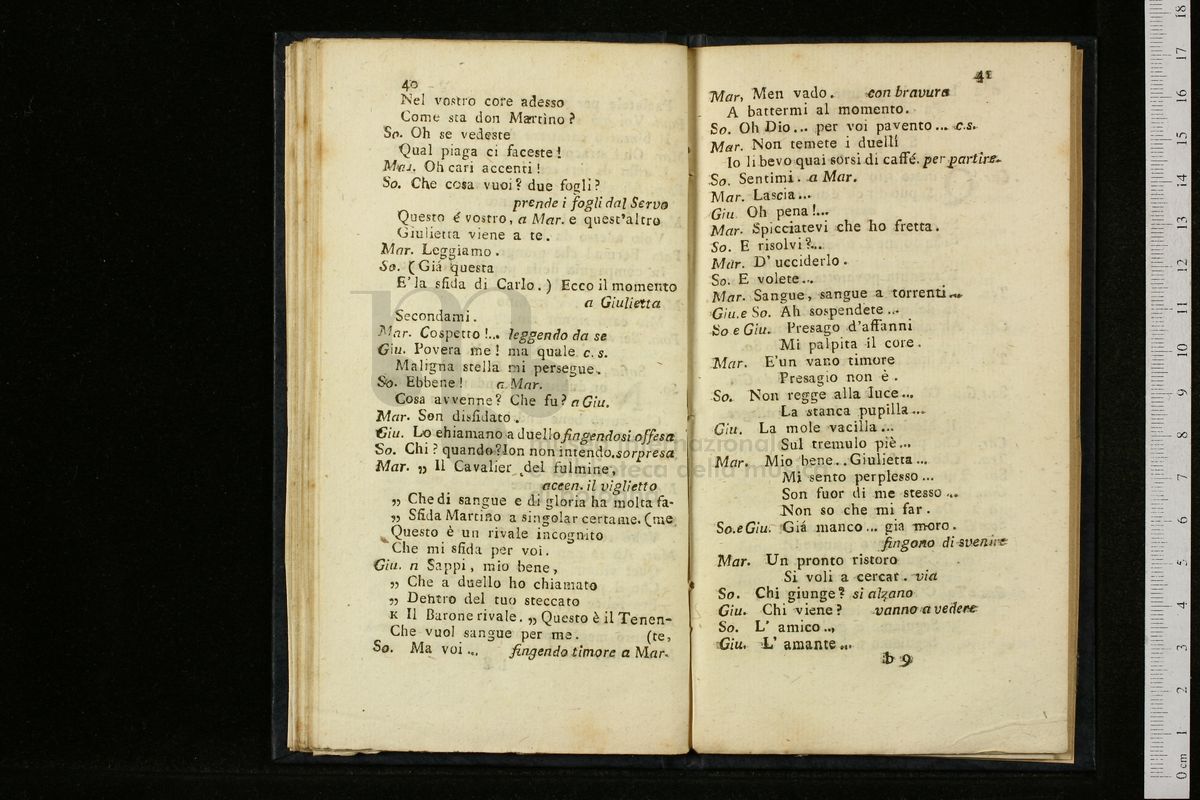 40
Nel vostro core adesso
Come sta don Martino?
So. Oh se vedeste
Qual piaga ci faceste!
Mar. Oh cari accenti!
So. Che cosa vuoi? due fogli?
prende i fogli dal Servo
Questo é vostro, a Mar. e quest'altro
Giulietta viene a te.
Mar. Leggiamo.
So. (Giá questa
E' la sfida di Carlo.) Ecco il momento
a Giulietta
Secondami.
Mar. Cospetto!... leggendo da se
Giu. Povera me! ma quale c. s.
Maligna stella mi persegue.
So. Ebbene! a Mar.
Cosa avvenne? Che fu? a Giu.
Mar. Son disfidato.
Giu. Lo chiamano a duello fingendosi offesa
So. Chi? quando? Ion non intendo. sorpresa
Mar. „ Il Cavalier del fulmine,
accen. il viglietto
„ Che di sangue e di gloria ha molta fa-
„ Sfida Martino a singolar certame. (me
Questo è un rivale incognito
Che mi sfida per voi.
Giu. n Sappi, mio bene,
„ Che a duello ho chiamato
„ Dentro del tuo steccato
K Il Barone rivale. „ Questo è il Tenen-
Che vuol sangue per me. (te,
So. Ma voi ... fingendo timore a Mar.
41
Mar, Men vado. con bravura
A battermi al momento.
So. Oh Dio... per voi pavento... c.s.
Mar. Non temete i duelli
Io li bevo quai sorsi di caffé. per partire.
So. Sentimi. a Mar.
Mar. Lascia...
Giu. Oh pena!...
Mar. Spicciatevi che ho fretta.
So. E risolvi?...
Mar. D' ucciderlo.
So. E volete...
Mar. Sangue, sangue a torrenti...
Giu. e So. Ah sospendete...
So e Giu. Presago d'affanni
Mi palpita il core.
Mar. E' un vano timore
Presagio non è.
So. Non regge alla luce...
La stanca pupilla...
Giu. La mole vacilla...
Sul tremulo piè...
Mar. Mio bene.. Giulietta...
Mi sento perplesso...
Son fuor di me stesso...
Non so che mi far.
So. e Giu. Giá manco... gia moro.
fingono di svenire
Mar. Un pronto ristoro
Si voli a cercar. via
So. Chi giunge? si alzano
Giu. Chi viene? vanno a vedere
So. L' amico...
Giu. L' amante...
b 9